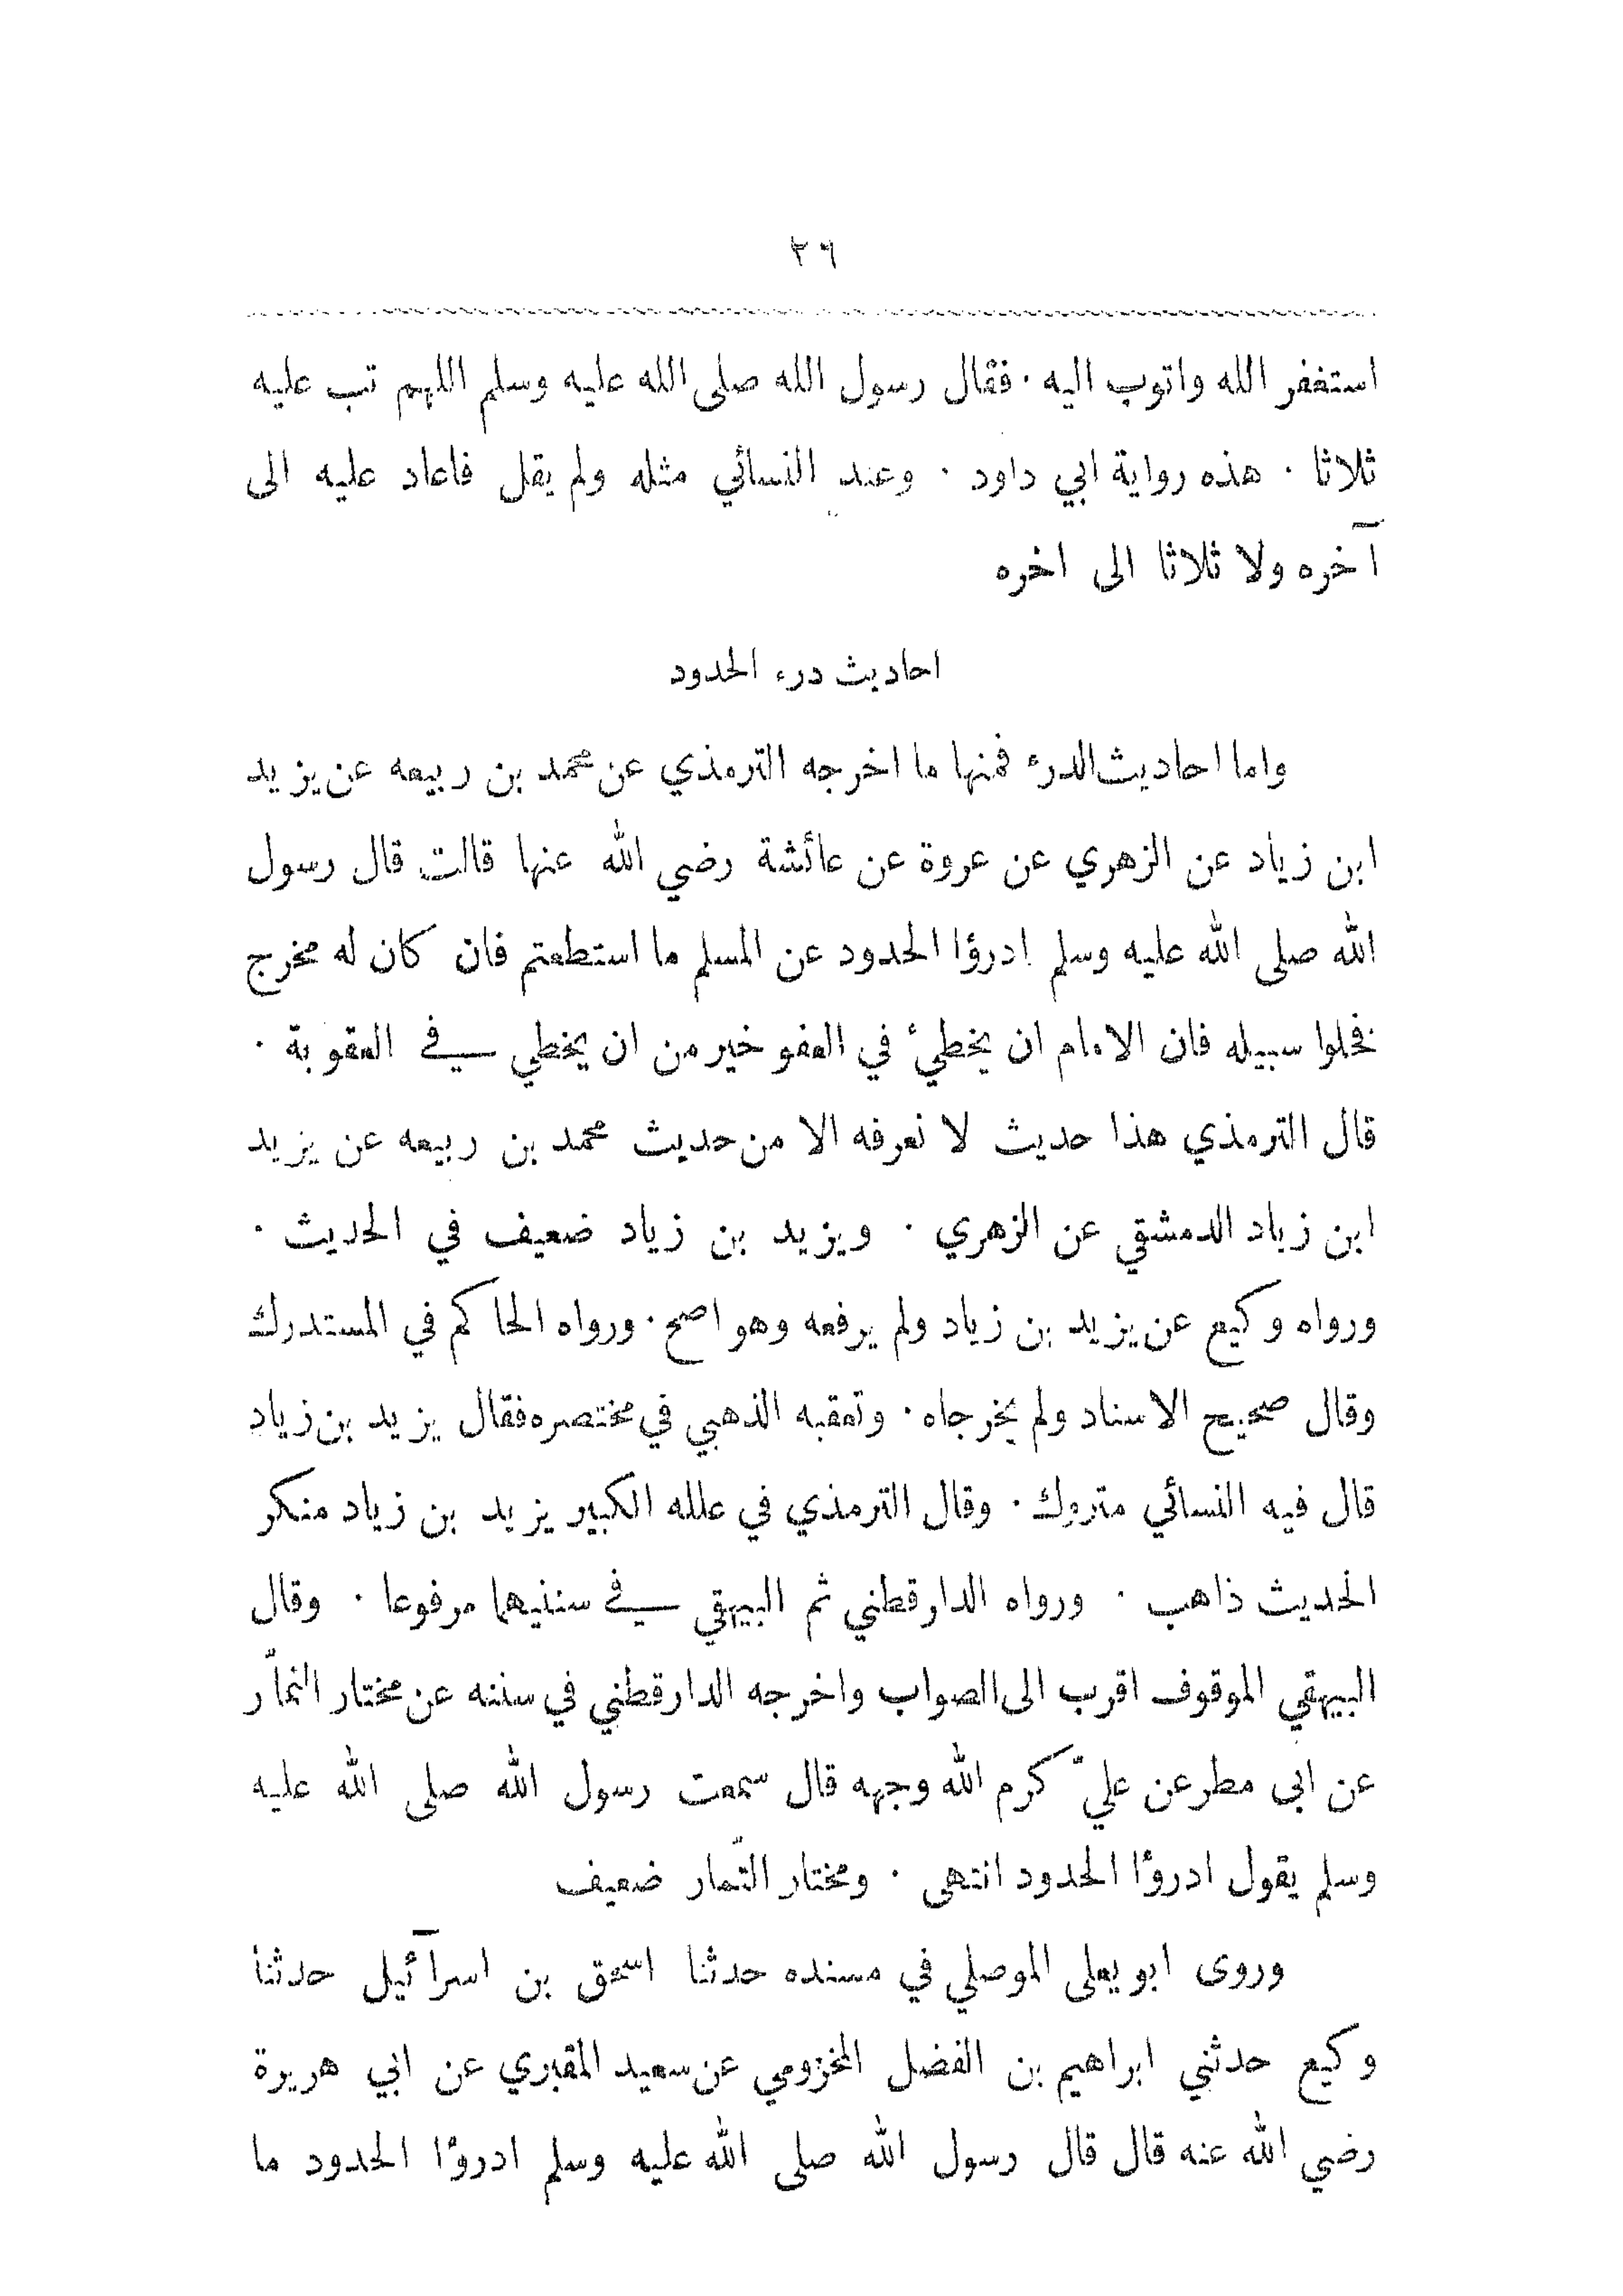 ٢٦
استغفر الله واتوب اليه · فقال رسول الله صلى الله عليه وسلم اللهم تب عليه
ثلاثا · هذه رواية ابي داود · وعند النسائي مثله ولم يقل فاعاد عليه الى
آخره ولا ثلاثا الى اخره
احاديث درء الحدود
واما احاديث الدرء فمنها ما اخرجه الترمذي عن محمد بن ربيعه عن يزيد
ابن زياد عن الزهري عن عروة عن عائشة رضي الله عنها قالت قال رسول
الله صلى الله عليه وسلم ادرؤا الحدود عن المسلم ما استطعتم فان كان له مخرج
فخلوا سبيله فان الامام ان يخطئ في العفو خير من ان يخطي في العقوبة ·
قال الترمذي هذا حديث لا نعرفه الا من حديث محمد بن ربيعه عن يزيد
ابن زياد الدمشقي عن الزهري · ويزيد بن زياد ضعيف في الحديث ·
ورواه وكيع عن يزيد بن زياد ولم يرفعه وهو اصح · ورواه الحاكم في المستدرك
وقال صحيح الاسناد ولم يخرجاه · وتعقبه الذهبي في مختصره فقال يزيد بن زياد
قال فيه النسائي متروك · وقال الترمذي في علله الكبير يزيد بن زياد منكر
الحديث ذاهب · ورواه الدارقطني ثم البيهقي في سننيهما مرفوعا · وقال
البيهقي الموقوف اقرب الى الصواب واخرجه الدارقطني في سننه عن مختار التمّار
عن ابى مطر عن عليّ كرم الله وجهه قال سمعت رسول الله صلى الله عليه
وسلم يقول ادرؤا الحدود انتهى · ومختار التّمار ضعيف
وروى ابو يعلى الموصلي في مسنده حدثنا اسحق بن اسرآئيل حدثنا
وكيع حدثني ابراهيم بن الفضل المخزومي عن سعيد المقبري عن ابي هريرة
رضي الله عنه قال قال رسول الله صلى الله عليه وسلم ادرؤا الحدود ما